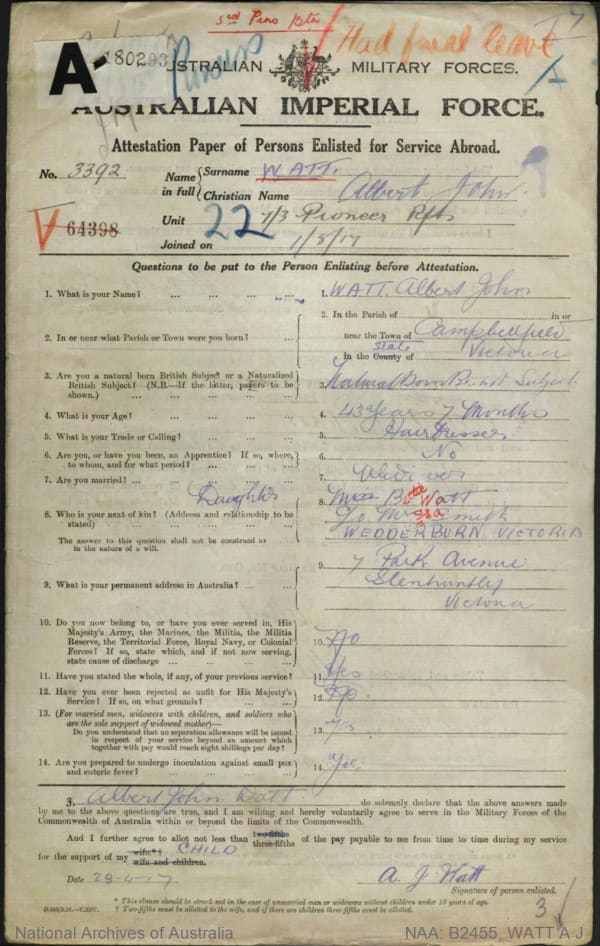 3rd Pino Rfts
Had final leave
A- 180293
AUSTRALIAN MILITARY FORCES.
AUSTRALIAN IMPERIAL FORCE.
Attestation Paper of Persons Enlisted for Service Abroad.
No. 3392
Name in full { Surname WATT.
Christian Name Albert John.
V 64398
Unit 22 7/3 Pioneer Rfts
Joined on 1/8/17
Questions to be put to the Person Enlisting before Attestation.
1. What is your Name? ... ... ... ... 1. WATT. Albert John
2. In or near what Parish or Town were you born? ... 2. In the Parish of in or
near the Town of Campbellfield
in the County of State Victoria
3. Are you a natural born British Subject or a Naturalized
British Subject? (N.B.—If the latter, papers to be
shown.) ... ... ... ... 3. Natural Born British Subject
4. What is your Age? ... ... ... ... 4. 43 Years 7 Months
5. What is your Trade or Calling? ... ... ... 5. Hair Dresser
6. Are you, or have you been, an Apprentice? If so, where,
to whom, and for what period? ... ... ... 6. No
7. Are you married? ... ... ... ... 7. Widower
8. Who is your next of kin? (Address and relationship to be
stated) ... ... ... ... Daughter
The answer to this question shall not be construed as
in the nature of a will.
8. Miss Watt
Smith
WEDDERBURN VICTORIA
9. What is your permanent address in Australia? ... ... 9. 7 Park Avenue
Glenhuntley
Victoria
10. Do you now belong to, or have you ever served in, His
Majesty's Army, the Marines, the Militia, the Militia
Reserve, the Territorial Force, Royal Navy, or Colonial
Forces? If so, state which, and if not now serving,
state cause of discharge ... ... ... 10. No
11. Have you stated the whole, if any, of your previous service? 11. Yes
12. Have you ever been rejected as unfit for His Majesty's
Service? If so, on what grounds? ... ... 12. No
13. (For married men, widowers with children, and soldiers who
are the sole support of widowed mother)—
Do you understand that no separation allowance will be issued
in respect of your service beyond an amount which
together with pay would reach eight shillings per day? 13. Yes
14. Are you prepared to undergo inoculation against small pox
and enteric fever? ... ... ... ... 14. Yes.
I, Albert John Watt do solemnly declare that the above answers made
by me to the above questions are true, and I am willing and hereby voluntarily agree to serve in the Military Forces of the
Commonwealth of Australia within or beyond the limits of the Commonwealth.
And I further agree to allot not less than two-fifths three-fifths of the pay payable to me from time to time during my service
for the support of my wife*† wife and children. CHILD
Date 29-6-17 A. J. Watt
Signature of person enlisted.
* This clause should be struck out in the case of unmarried men or widowers without children under 18 years of age.
† Two-fifths must be allotted to the wife, and if there are children three-fifths must be allotted.
3
National Archives of Australia NAA: B2455, WATT A J